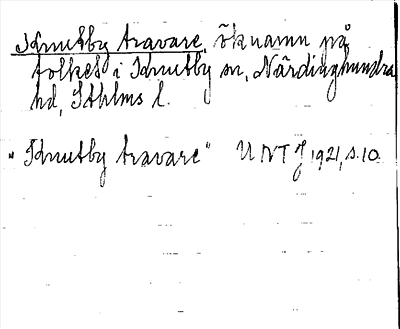 Knutby travare, öknamn på
folket i Knutby sn, Närdinghundra
hd, Sthlms l.
"Knutby travare" UNT J 1921, s. 10